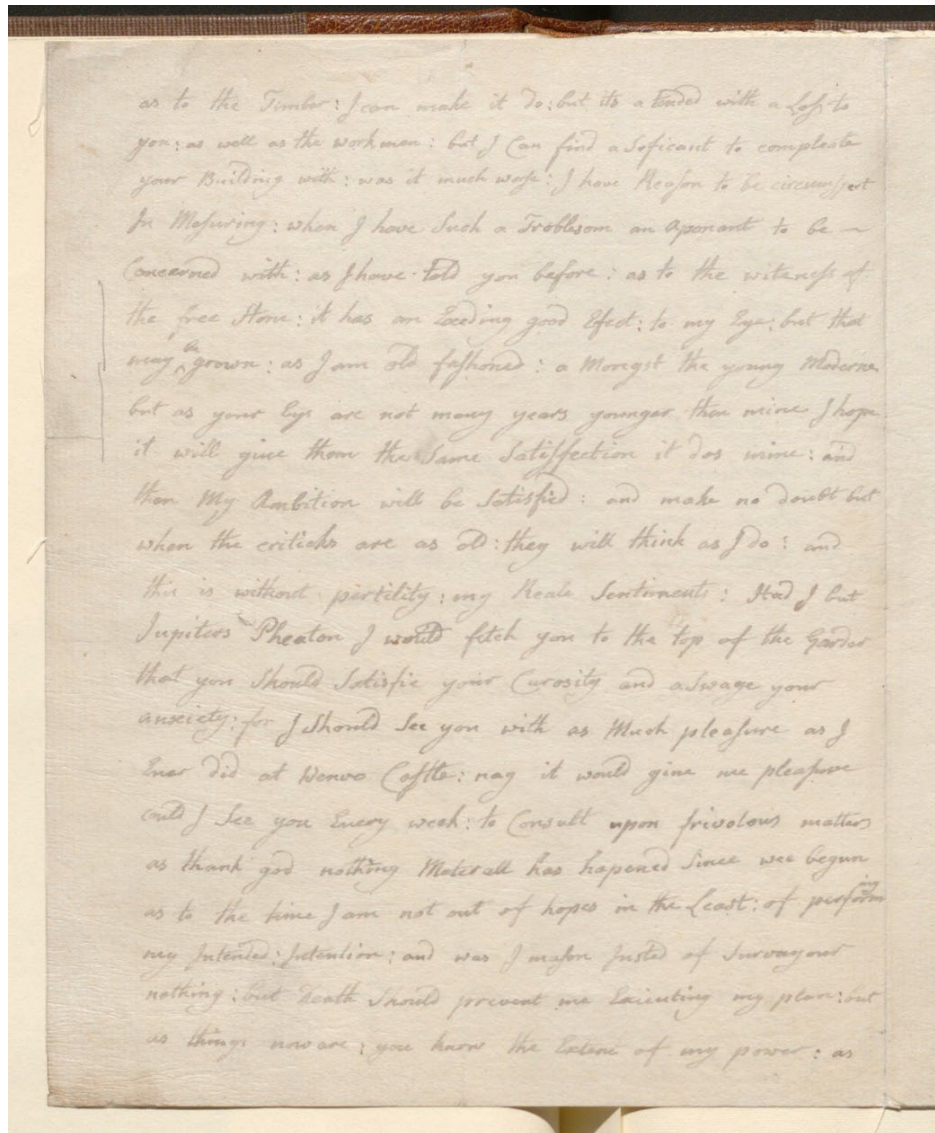 as to the Timber: I can make it do: but its a tended with a Loss to
you: as well as the workmen: but I Can find a Soficant to compleate
your Building with: was it much wose: I have Reason to be circumspect
In Mesuring: when I have Such a Troblesom an Aponant to be ~
Concerned with: as I have told you before: as to the witeness of
the free Stone: it has an Exeding good Efect: to my Eye: but that
may be grown: as I am old fashoned: a Mongst the young Moderns
but as your Eys are not many years younger then mine I hope
it will give them the Same Satisfection it dos mine: and
then My Ambition will be Satisfied: and make no doubt but
when the criticks are as old: they will think as I do: and
this is without pertility: my Reale Sentiments: Had I but
Jupiters Pheaton I would fetch you to the top of the Garder
that you Should Satisfie your Curosity and aswage your
anxiety: for I Should See you with as Much pleasure as I
Ever did at Wenvo Castle: nay it would give me pleasure
could I See you Every week: to Consult upon frivolous matters
as thank god nothing Materall has hapened Since wee begun
as to the time I am not out of hopes in the Least: of performing
my Intended: Intention: and was I mason Insted of Survayour
nothing: but Death Should prevent me Exicuting my plan: but
as things now are: you know the Extent of my power: as